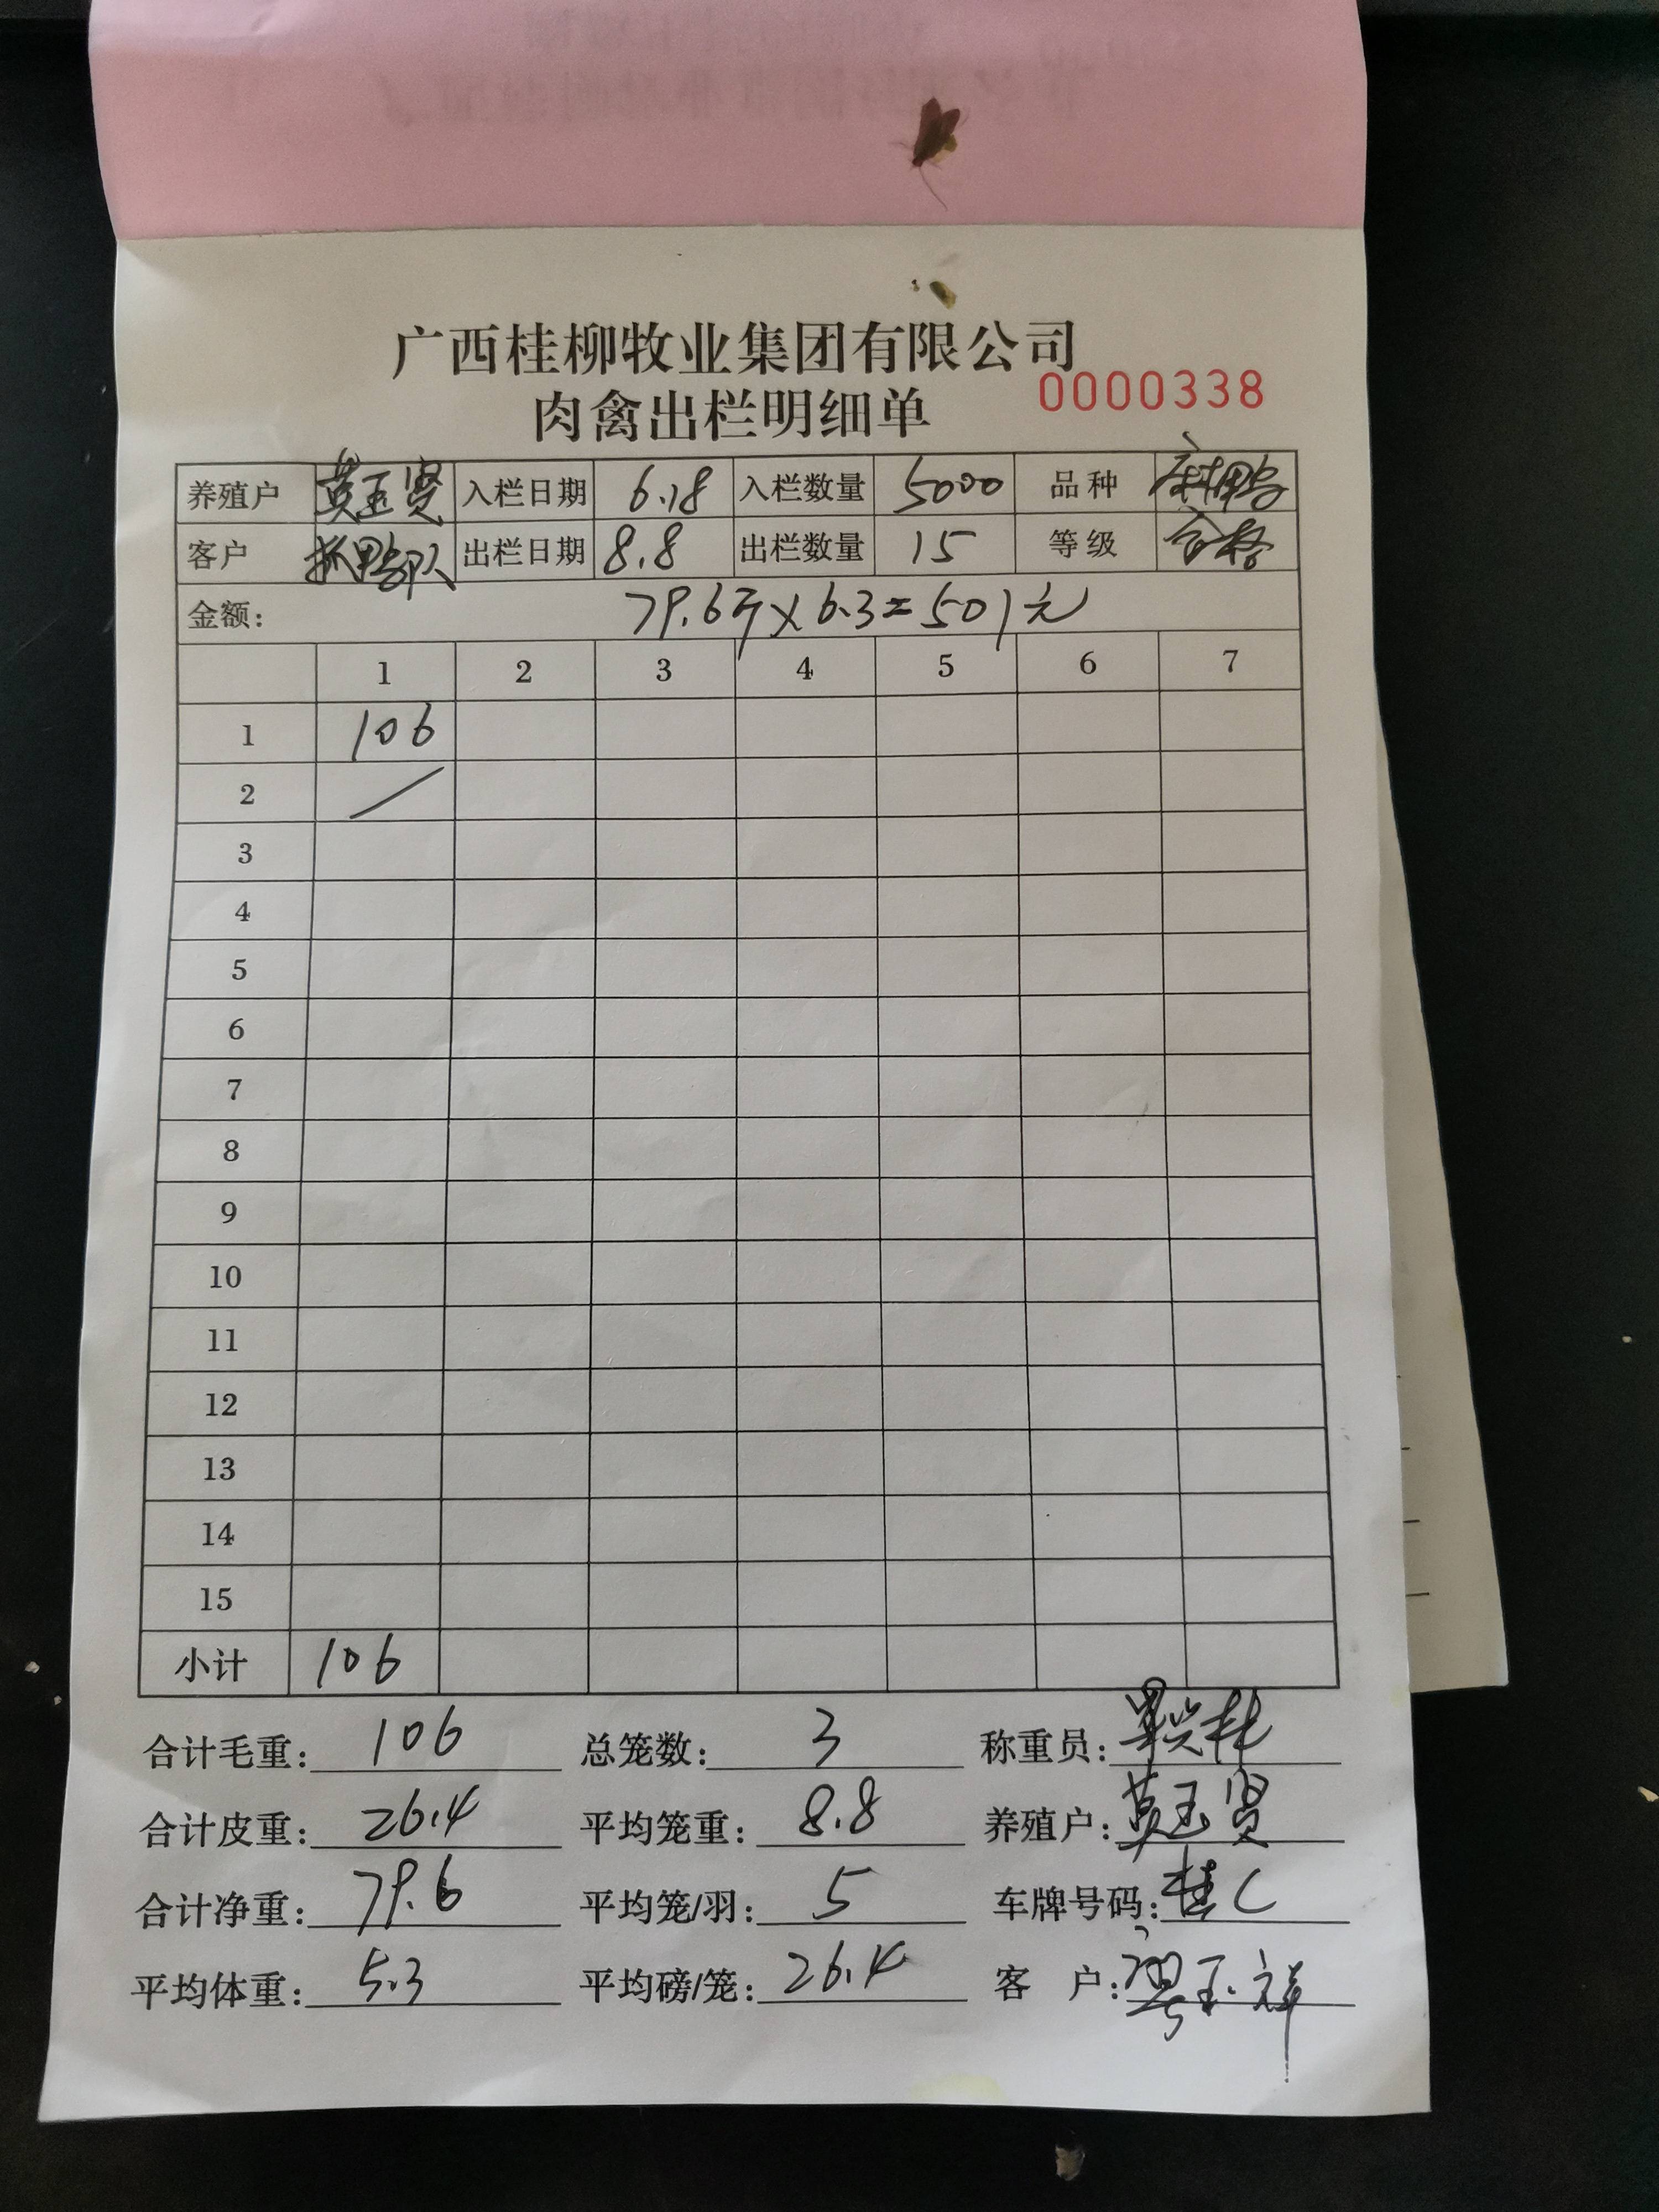 广西桂柳牧业集团有限公司
肉禽出栏明细单 0000338
养殖户 黄玉贤 入栏日期 6.18 入栏数量 5000 品种 麻鸭
客户 抓鸭队 出栏日期 8.8 出栏数量 15 等级 合格
金额: 79.6斤×6.3=501元
1 2 3 4 5 6 7
1 106
2 /
3
4
5
6
7
8
9
10
11
12
13
14
15
小计 106
合计毛重: 106 总笼数: 3 称重员:
合计皮重: 26.4 平均笼重: 8.8 养殖户: 黄玉贤
合计净重: 79.6 平均笼/羽: 5 车牌号码: 桂C
平均体重: 5.3 平均磅/笼: 26.4 客 户: 玉祥